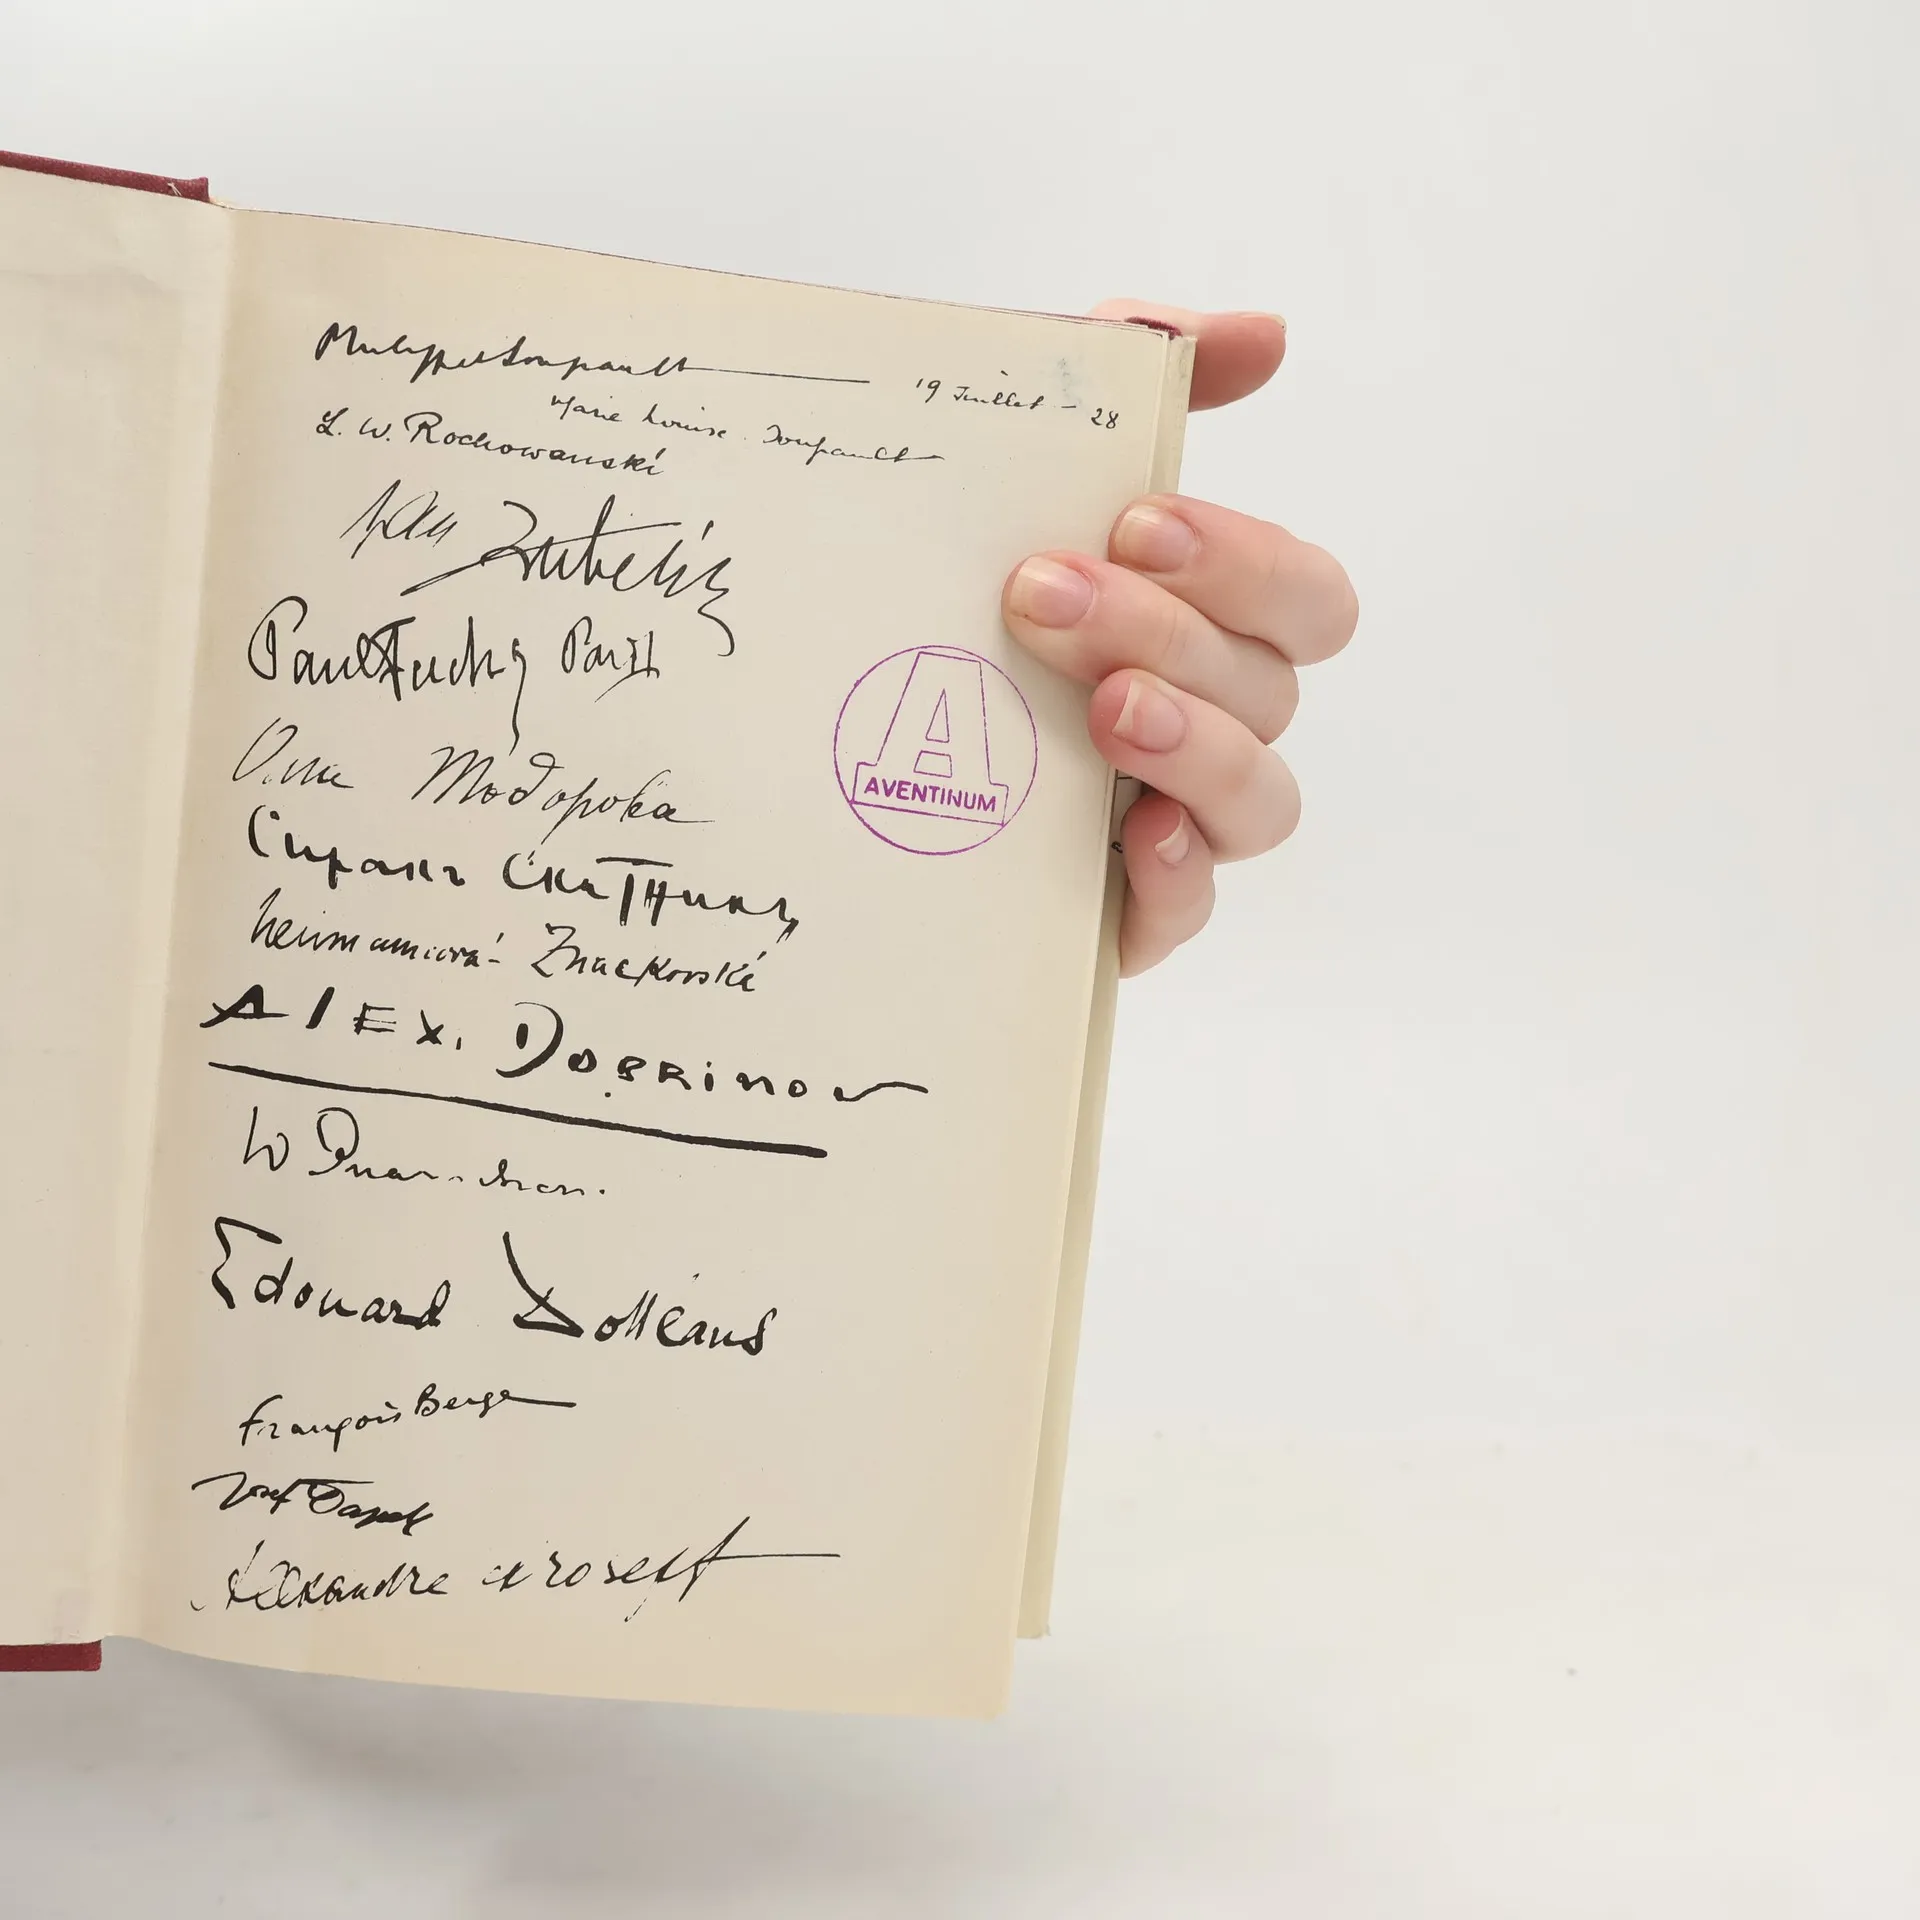 Philippe Soupault 19 Juillet - 28
Marie Louise Soupault
L. W. Rochowanski
Jan
Paul Fuchs Paris
Сиракъ Скитникъ
Heimannová- Znackovské
ALEX. DOBRINOV
W
Edouard Dolléans
François Berge
Josef Čapek
Alexandre
AVENTINUM
A